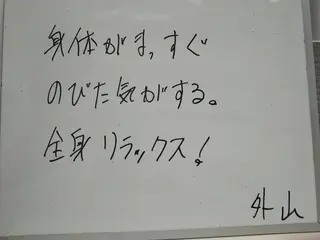 身体がまっすぐ
のびた気がする。
全身リラックス!
外山